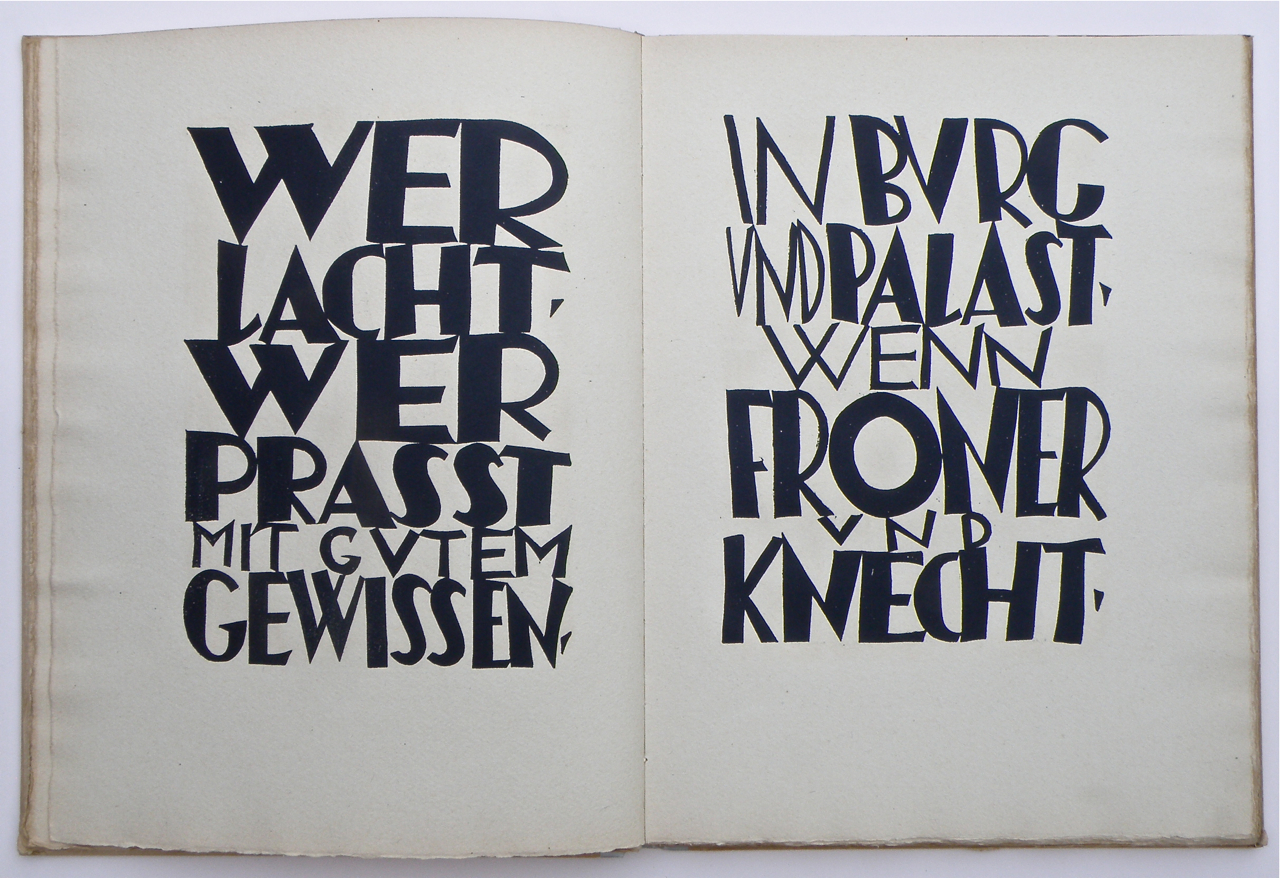 WER
LACHT,
WER
PRASST
MIT GVTEM
GEWISSEN,
IN BVRG
VND PALAST,
WENN
FRONER
VND
KNECHT,